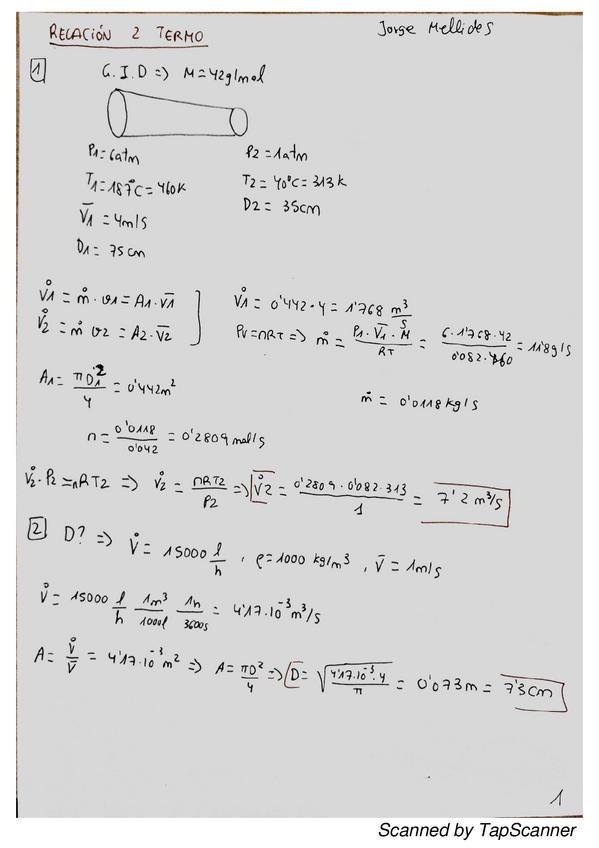 RELACIÓN 2 TERMO
Jorge Mellides
1 G.I.D => M = 42g/mol
P1 = 6atm P2 = 1atm
T1 = 187°C = 460K T2 = 40°C = 313K
V̄1 = 4m/s D2 = 35cm
D1 = 75cm
V̊1 = m̊ · v1 = A1 · V̄1 V̊1 = 0'442 · 4 = 1'768 m³/s
V̊2 = m̊ v2 = A2 · V̄2 PV = nRT => m̊ = P1 · V̄1 · M / RT = 6 · 1'768 · 42 / 0'082 · 460 = 11'8g/s
A1 = πD1² / 4 = 0'442m² m̊ = 0'0118kg/s
n = 0'0118 / 0'042 = 0'2809mol/s
V̊2 · P2 = nRT2 => V̊2 = nRT2 / P2 => V̊2 = 0'2809 · 0'082 · 313 / 1 = 7'2 m³/s
2 D? => V̊ = 15000 l/h , ρ = 1000 kg/m³ , V̄ = 1m/s
V̊ = 15000 l/h 1m³/1000l 1h/3600s = 4'17·10⁻³m³/s
A = V̊/V̄ = 4'17·10⁻³m² => A = πD²/4 => D = √(4'17·10⁻³·4 / π) = 0'073m = 7'3cm
1
Scanned by TapScanner